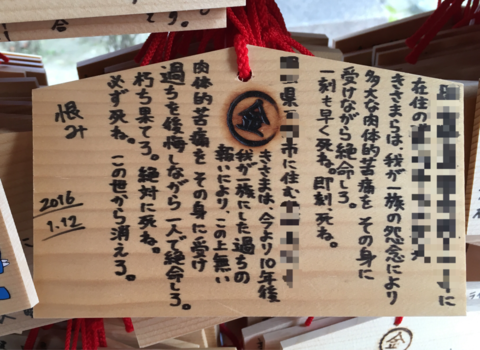 に
在住の
きさまらは、我が一族の怨念により
多大な肉体的苦痛を その身に
受けながら絶命しろ。
一刻も早く死ね。即刻死ね。
県 市に住む
きさまは、今より10年後
我が一族にした過ちの
報いにより、この上無い
肉体的苦痛を その身に受け
過ちを後悔しながら一人で絶命しろ。
朽ち果てろ。絶対に死ね。
必ず死ね。この世から消えろ。
恨み
2016
1.12
金
金